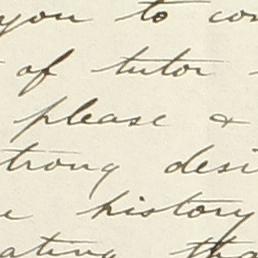 you to con
of tutor
please &
trong desi
history
ating tha